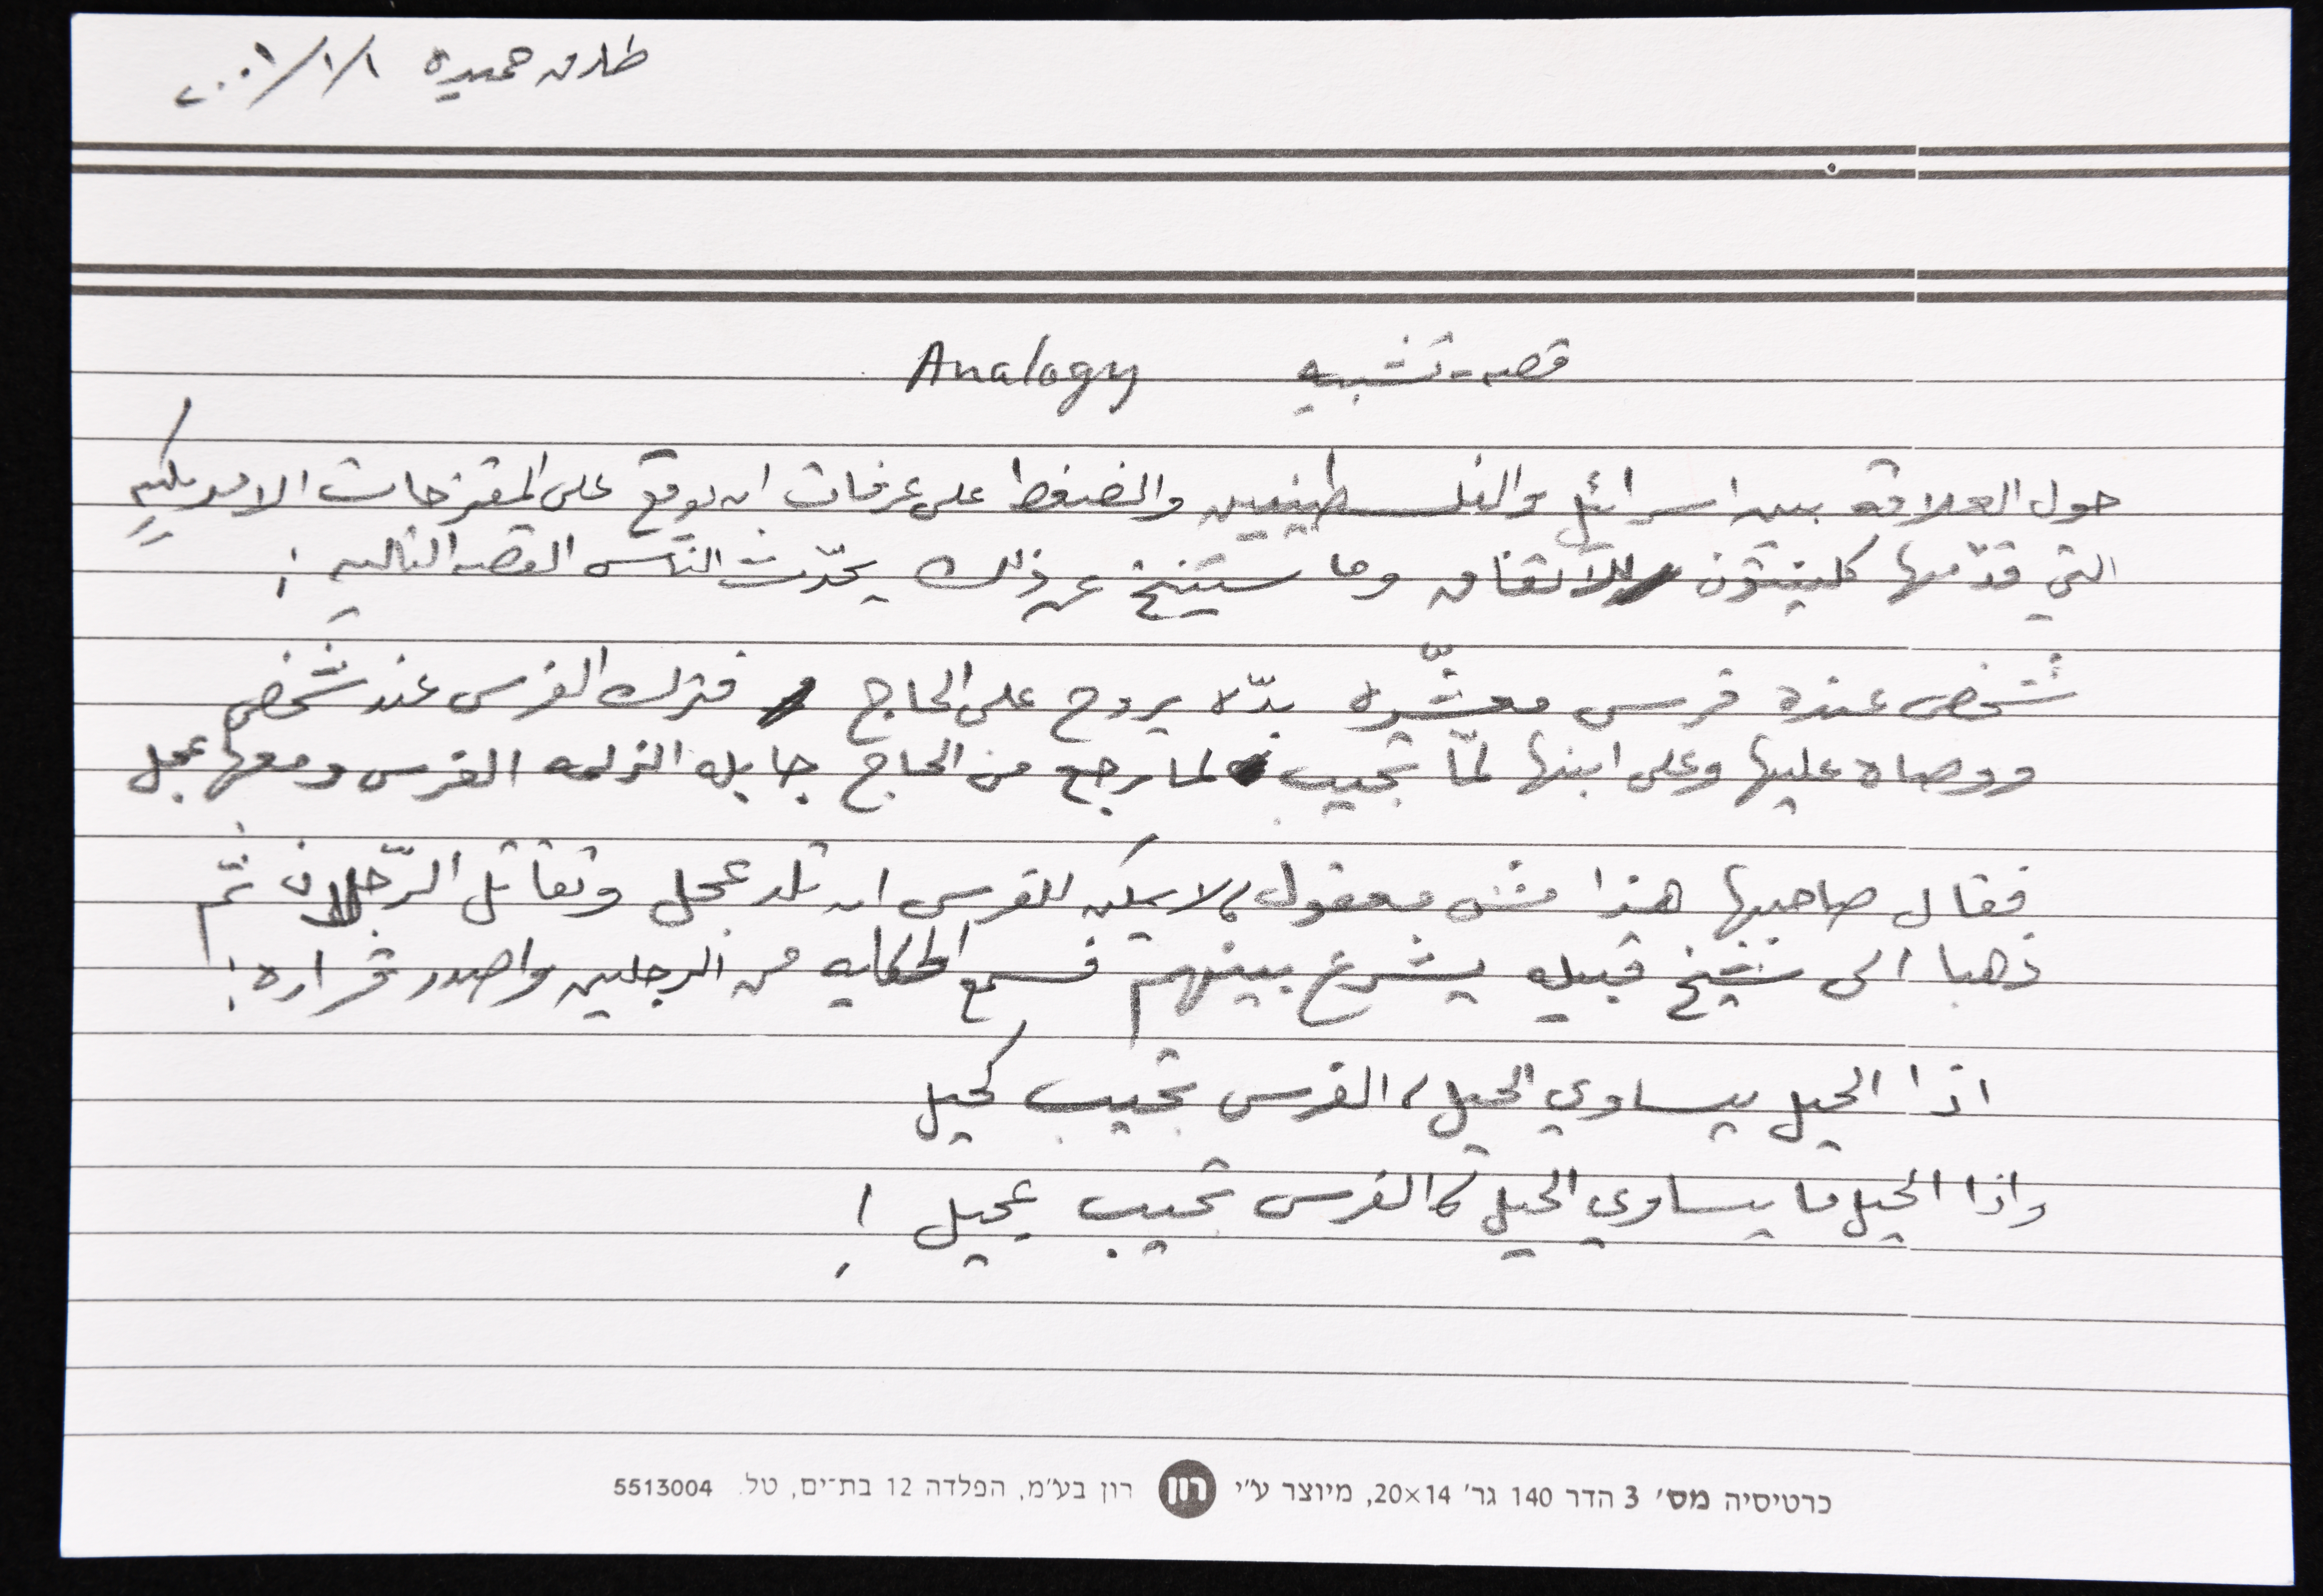 طارق حميده ٢٠٠١/١/١
قصه - تشبيه Analogy
حول العلاقة بين اسرائيل والفلسطينيين والضغط على عرفات ان يوقع على المقترحات الامريكيه
التي قدّمها كلينتون للاتفاق وما سينتج عن ذلك يحدّث الناس القصه التاليه :
شخص عنده فرس معشّره بدّه يروح على الحاج فترك الفرس عند شخص
ووصاه عليها وعلى ابنها لمّا تجيب لما رجع من الحاج جايله الزلمه الفرس ومعها عجل
فقال صاحبها هذا مش معقول، لا يمكن للفرس ان تلد عجل وتقاتل الرّجلان ثم
ذهبا الى شيخ قبيله يشرع بينهم فسمع الحكايه من الرجلين واصدر قراره :
اذا الحيل بيساوي الحيل، الفرس تجيب كحيل
واذا الحيل ما بيساوي الحيل، الفرس تجيب عجيل !
כרטיסיה מס׳ 3 הדר 140 גר׳ 20×14, מיוצר ע״י רון רון בע״מ, הפלדה 12 בת־ים, טל. 5513004